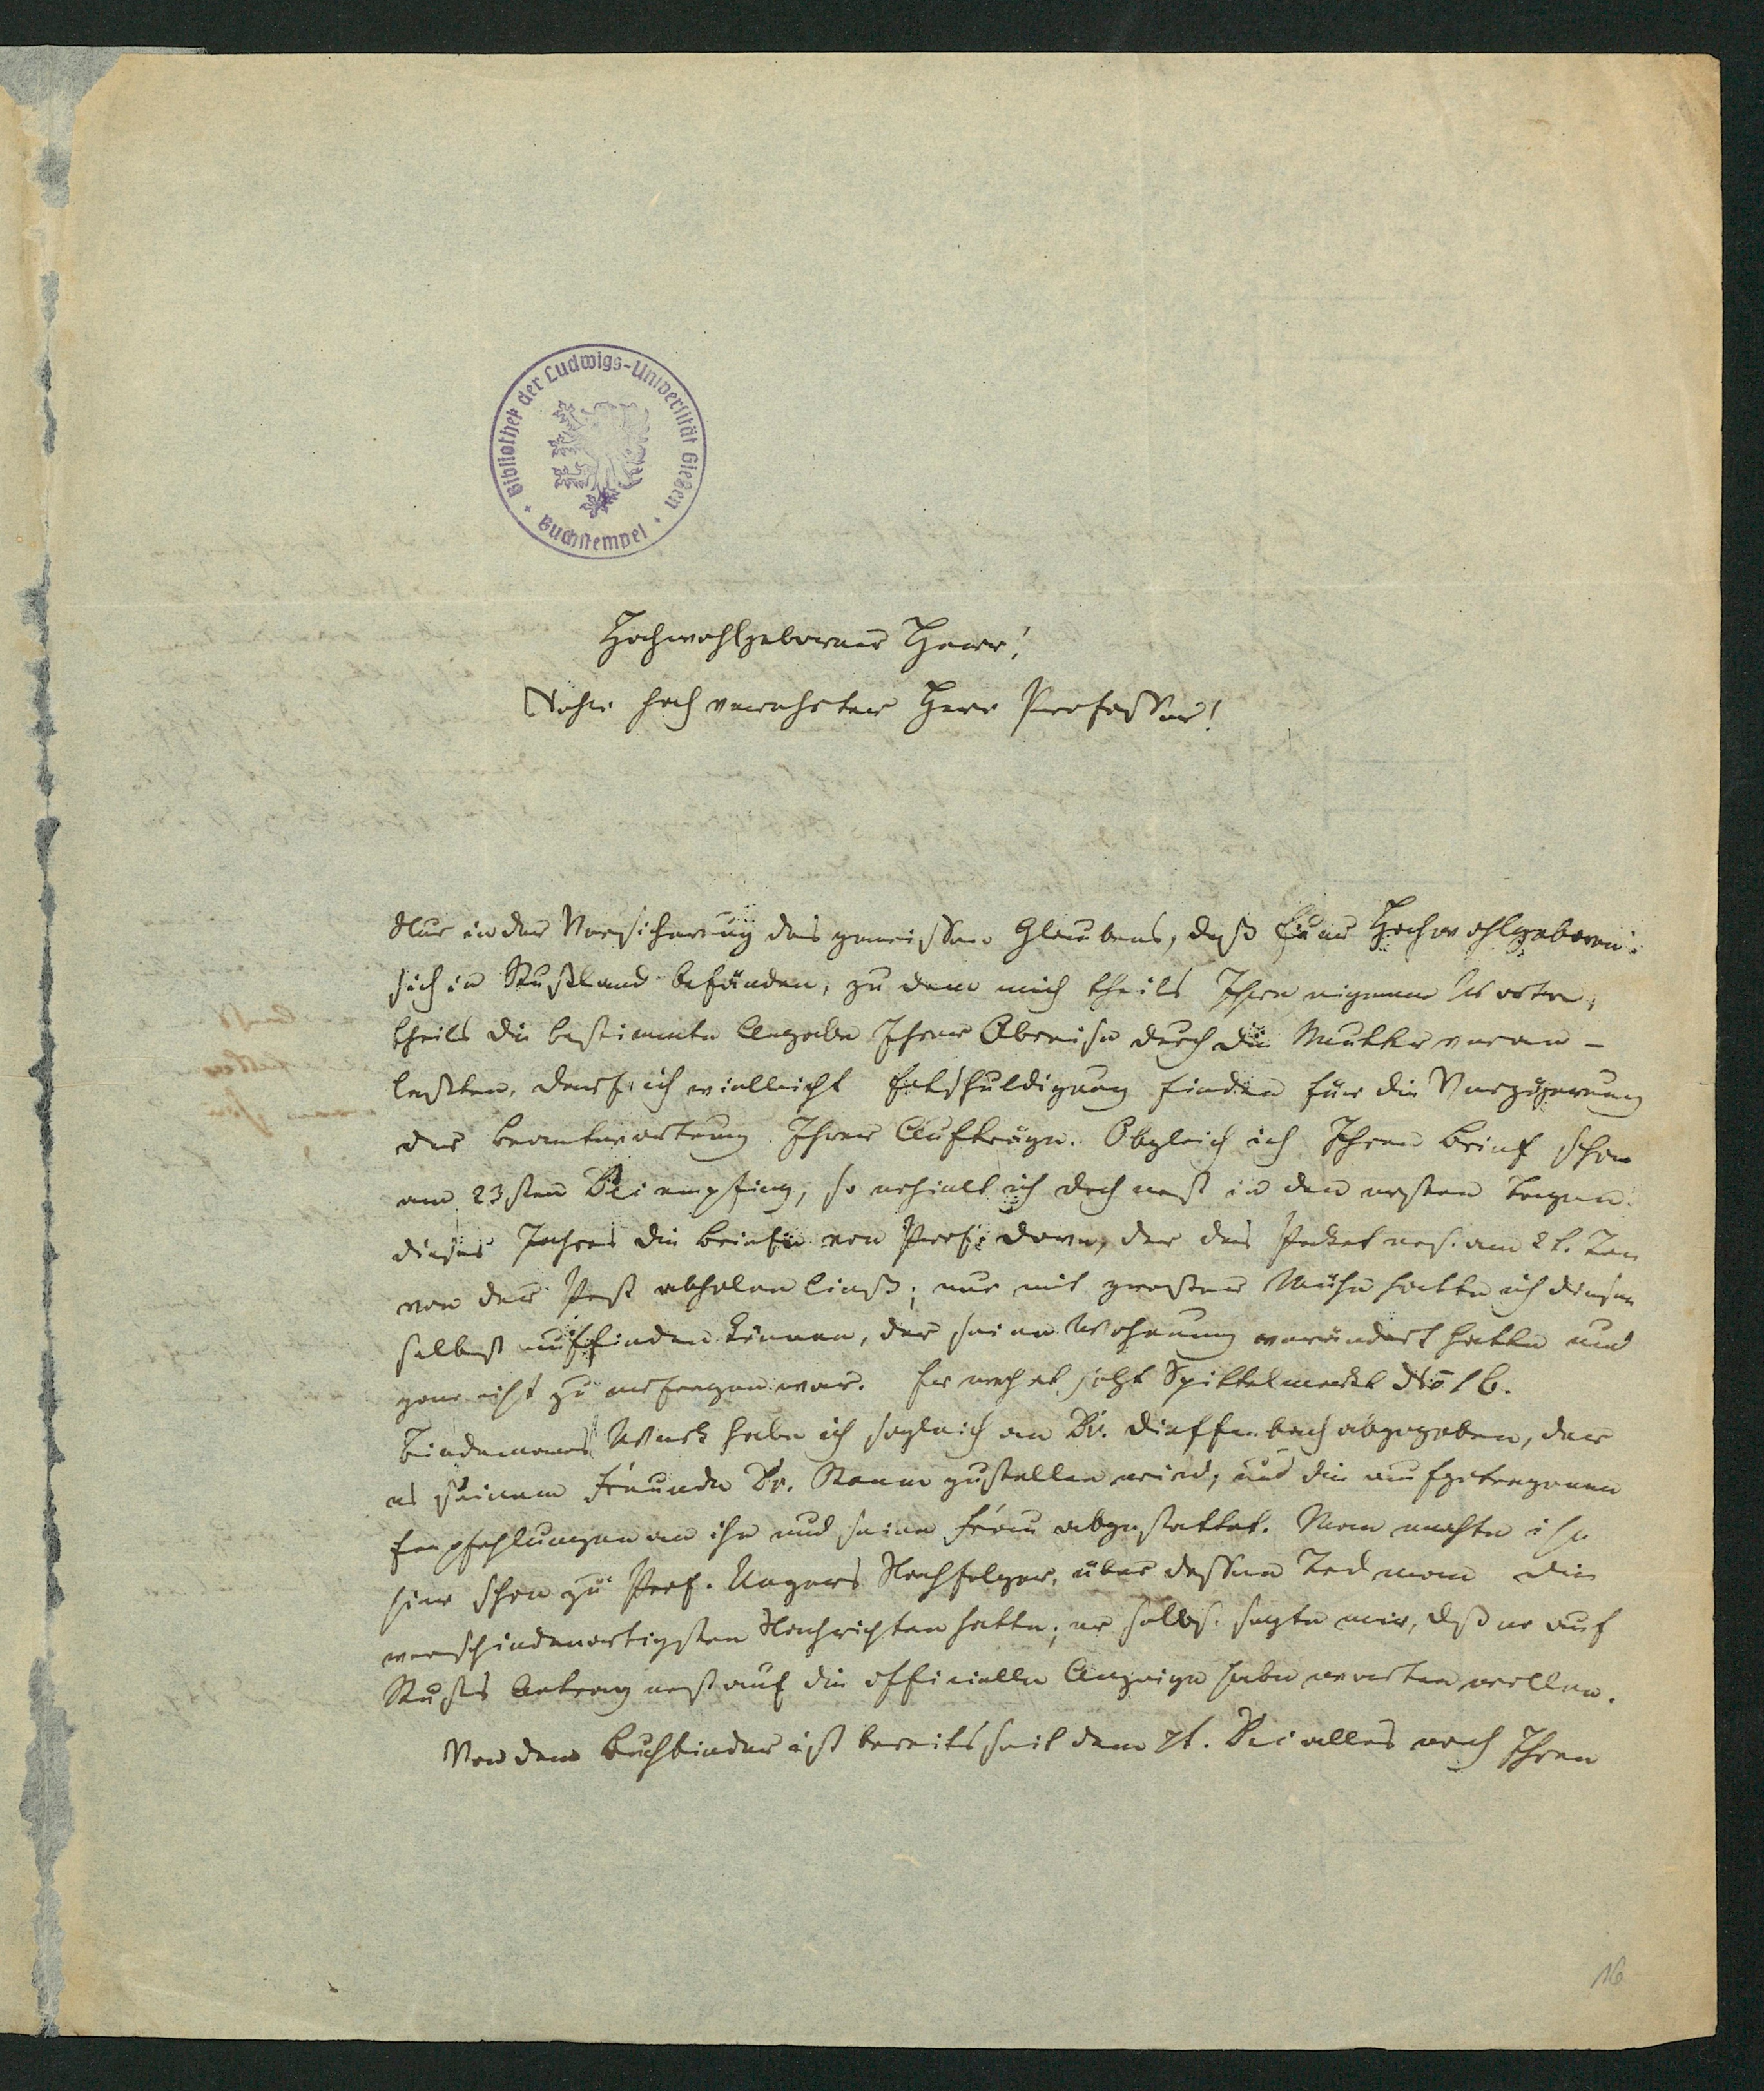 Bibliothek der Ludwigs-Universität Gießen
Buchstempel
Hochwohlgeborner Herr!
Sehr hoch verehrter Herr Professor!
Nur in der Versicherung des gewissen Glaubens, daß Euer Hochwohlgeboren
sich in Rußland befänden, zu dem mich theils Ihre eignen Worte,
theils die bestimmte Angabe Ihrer Abreise durch die Mutter veran-
laßten, darf ich vielleicht Entschuldigung finden für die Verzögerung
der Beantwortung Ihrer Aufträge. Obgleich ich Ihren Brief schon
am 23sten empfing, so erhielt ich doch erst in den ersten Tagen
dieses Jahres die Briefe von Prof. Dove, der das Packet erst am 2t. Jan
von der Post abholen ließ; nur mit großer Mühe hatte ich diesen
selbst auffinden können, der seine Wohnung verändert hatte und
gar nicht zu erfragen war. Er wohnt jetzt Spittelmarkt No 16.
Lindemanns Werk habe ich sogleich an Dr. Dieffenbach abgegeben, der
es seinem Freunde Dr. zustellen wird, und die aufgetragenen
Empfehlungen an ihn und seine Frau abgestattet. Man machte ihn
hier schon zu Prof. Ungers Nachfolger, über dessen Tod man die
verschiedenartigsten Nachrichten hatte; er selbst sagte mir, daß er auf
Rusts Antrag erst auf die officielle Anzeige habe warten wollen.
Von dem Buchbinder ist bereits seit dem alles nach Ihren
16